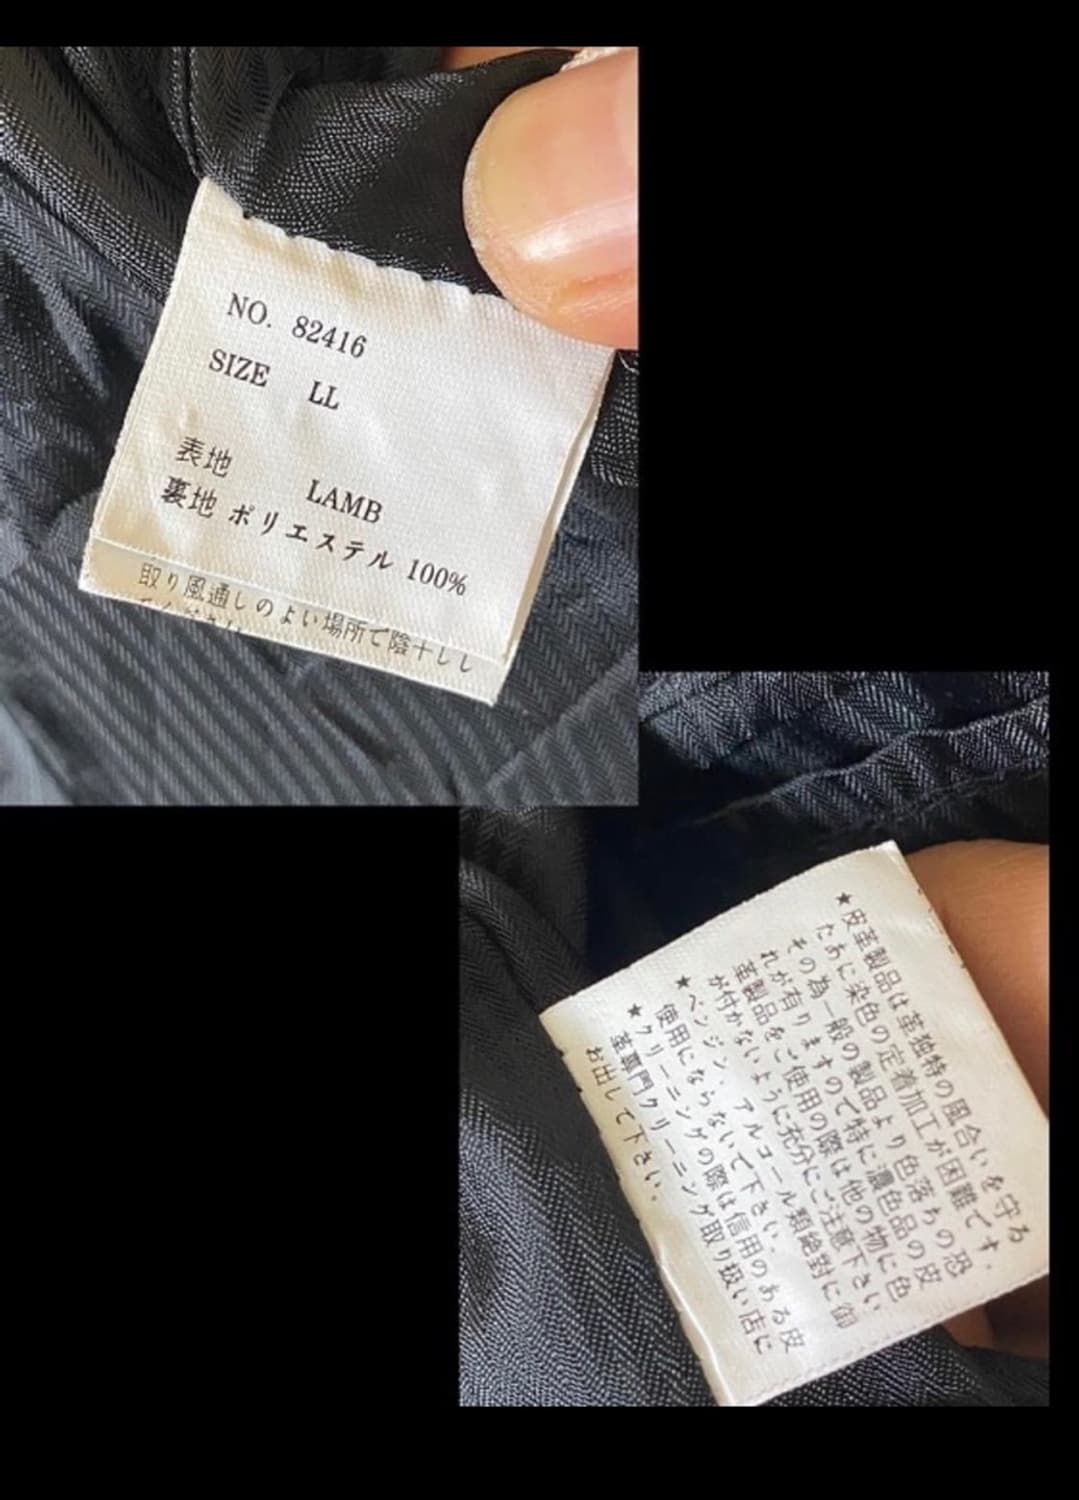 NO. 82416
SIZE LL
表地 LAMB
裏地 ポリエステル 100%
取り風通しのよい場所で陰干しし
てください
★皮革製品は革独特の風合いを守る
ために染色の定着加工が困難です.
その為一般の製品より色落ちの恐
れが有りますので特に濃色品の皮
革製品をご使用の際は他の物に色
が付かないように充分にご注意下さい
★ベンジン、アルコール類絶対に御
使用にならないで下さい.
★クリーニングの際は信用のある皮
革専門クリーニング取り扱い店に
お出して下さい.